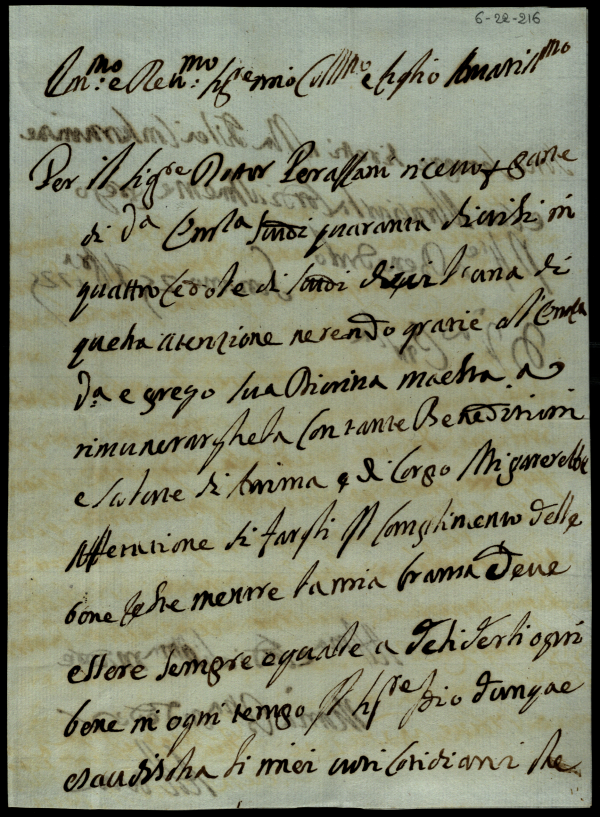 6-22-216
Em.mo e Reu.mo sig.re mio Coll.mo e figlio Amatis.mo
Per il sig.re Dotor Perassani riceuo p parte
di V.a Em.za scudi quaranta diuisi in
quattro cedole di scudi dieci l'una di
questa atenzione ne rendo grazie all'Em.za
V.a e prego sua Diuina maestra a
rimunerarghela con tante Benedizioni
e salute di Anima e di Corpo Mi parerebbe
Affetazione di farsli Il Complimento delle
bone feste mentre la mia brama deue
essere sempre equale a desiderli ogni
bene in ogni tempo Il sig.re Idio dunque
esaudischa li miei uoti cotidiani che